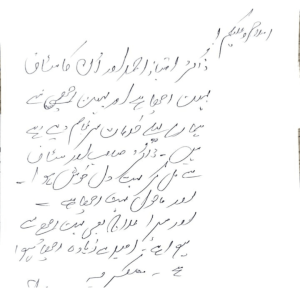 اسلام و علیکم!
ڈاکٹر امتیاز احمد اور ان کا سٹاف
بہت اچھا ہے اور بہت اچھے سے
ہمارے لیے خدمات سر انجام دے رہے
ہیں۔ ڈاکٹر صاحب اور سٹاف
سے مل کر بہت دل خوش ہوا۔
اور ماحول بہت اچھا ہے۔
اور میرا علاج بھی بہت اچھے سے
ہوا ہے امید سے زیادہ اچھا ہوا
ہے۔ شکریہ